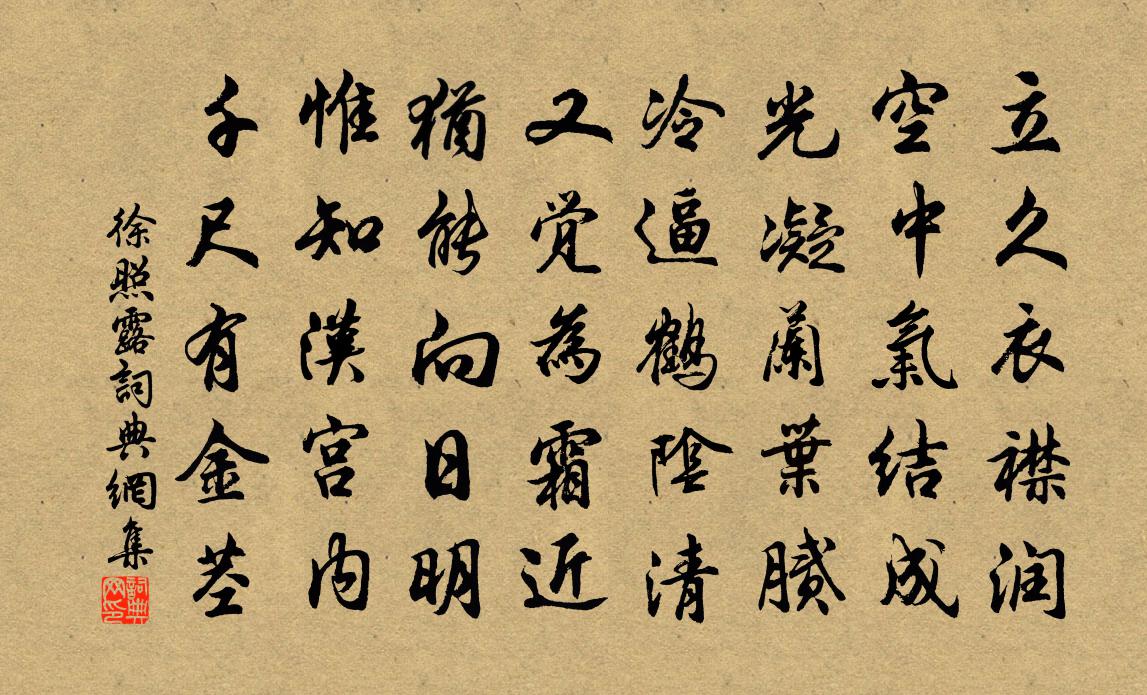 立久衣襟润
空中氣结成
光凝蘭葉膩
冷逼鶴陰清
又觉為霜近
猶能向日明
惟知漢宫内
千尺有金茎
徐照露詞典網集
詞典网印